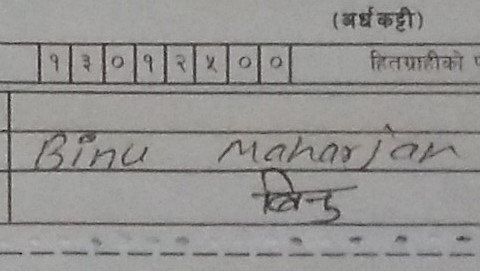 (अर्धकट्टी)
१३०१२५०० हितग्राहीको
Binu Maharjan
बिनु